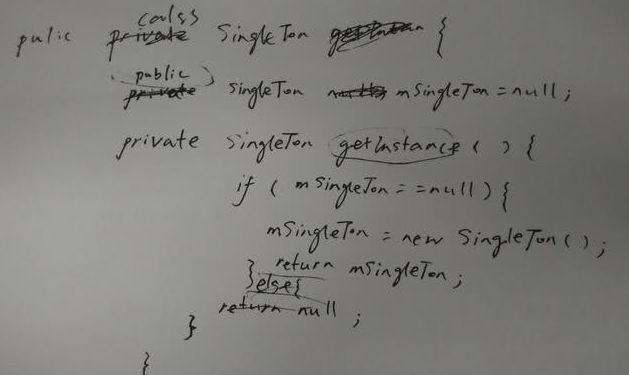 pulic class SingleTon {
public SingleTon mSingleTon = null;
private SingleTon getInstance ( ) {
if ( mSingleTon = = null ) {
mSingleTon = new SingleTon ( ) ;
return mSingleTon ;
} else {
return null ;
}
}